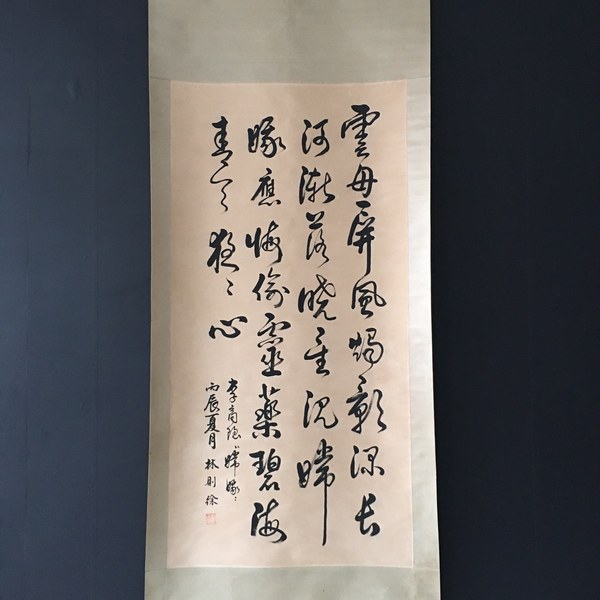 雲母屏風燭影深長
河漸落曉星沉嫦
娥應悔偷靈藥碧海
青天夜夜心
李商隱嫦娥
丙辰夏月 林則徐